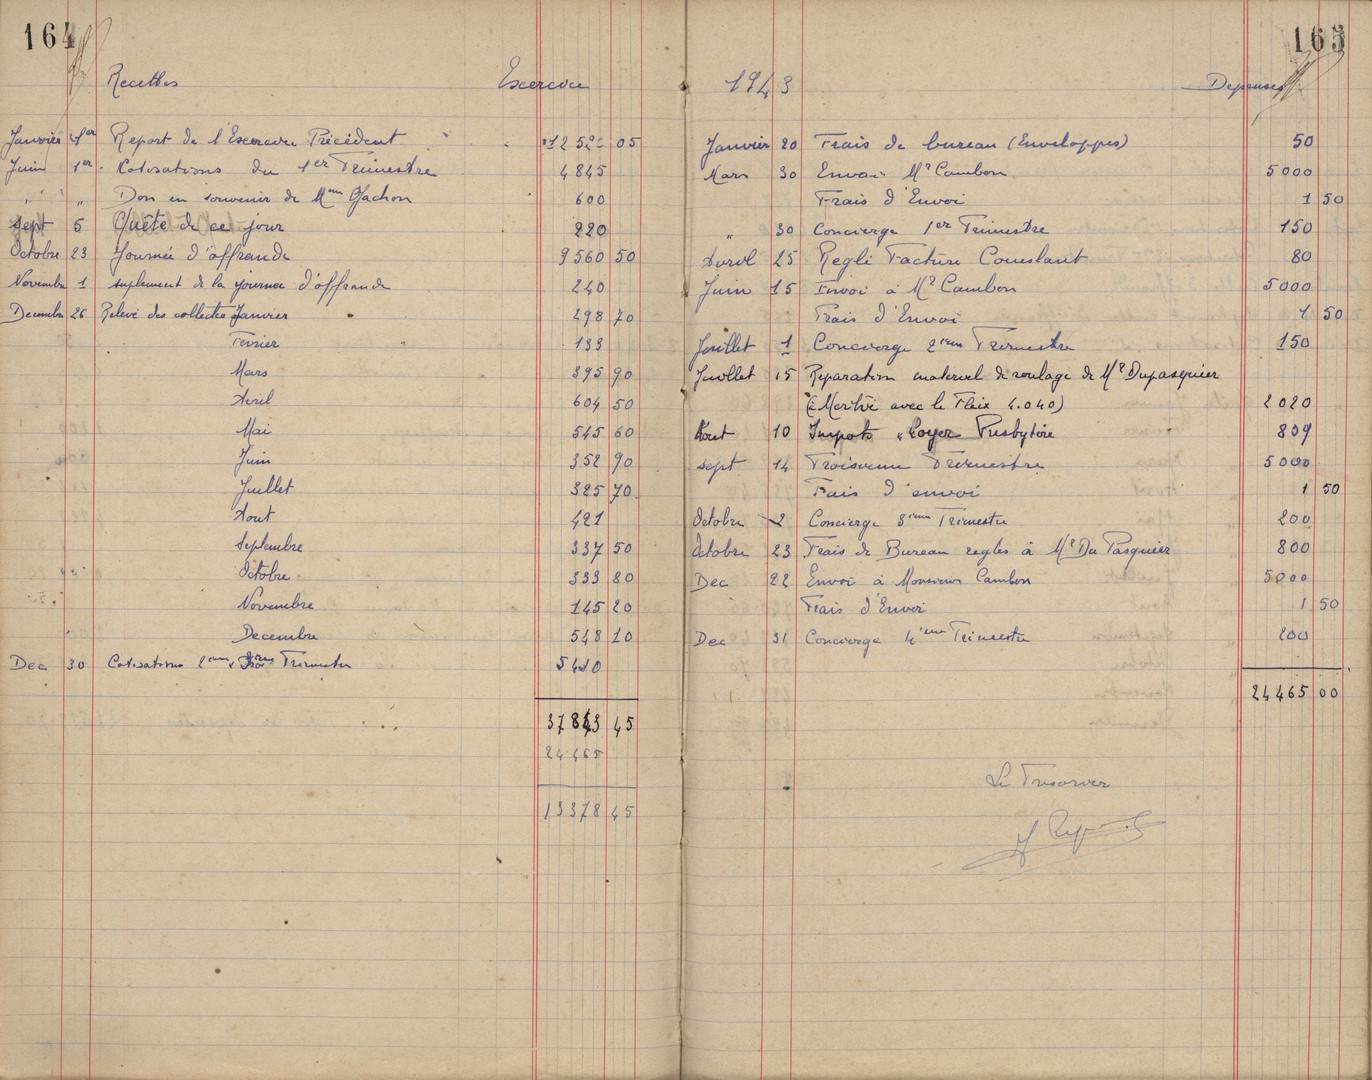 164
Recettes Exercice
Janvier 1er Report de l'Exercice Précédent 12 52 05
Juin 1er Cotisations du 1er Trimestre 4845
" " Don en souvenir de Mme Gachon 600
Sept 5 Quête de ce jour 220
Octobre 23 Journée d'offrande 9560 50
Novembre 1 suplement de la journee d'offrande 240
Decembre 26 Relevé des collectes Janvier 298 70
Fevrier 133
Mars 395 90
Avril 604 50
Mai 545 60
Juin 352 90
Juillet 325 70
Aout 421
Septembre 337 50
Octobre 333 80
Novembre 145 20
Decembre 548 10
Dec 30 Cotisations 2eme Trimestre
37843 45
24465
13378 45
165
1943 Depenses
Janvier 20 Frais de bureau (Enveloppes) 50
Mars 30 Envoi Mr Cambon 5000
Frais d'Envoi 1 50
" 30 Concierge 1er Trimestre 150
Avril 25 Reglé Facture Constant 80
Juin 15 Envoi à Mr Cambon 5000
Frais d'Envoi 1 50
Juillet 1 Concierge 2eme Trimestre 150
Juillet 15 Reparation materiel de roulage de Mr Dupasquier
(à Moitié avec le Fleix 4.040) 2020
Aout 10 Impots " Loyer Presbytère 809
Sept 14 Troisieme Trimestre 5000
Frais d'envoi 1 50
Octobre 2 Concierge 3ieme Trimestre 200
Octobre 23 Frais de Bureau regles à Mr Du Pasquier 800
Dec 22 Envoi à Monsieur Cambon 5000
Frais d'Envoi 1 50
Dec 31 Concierge 4ieme Trimestre 200
24465 00
Le Tresorier